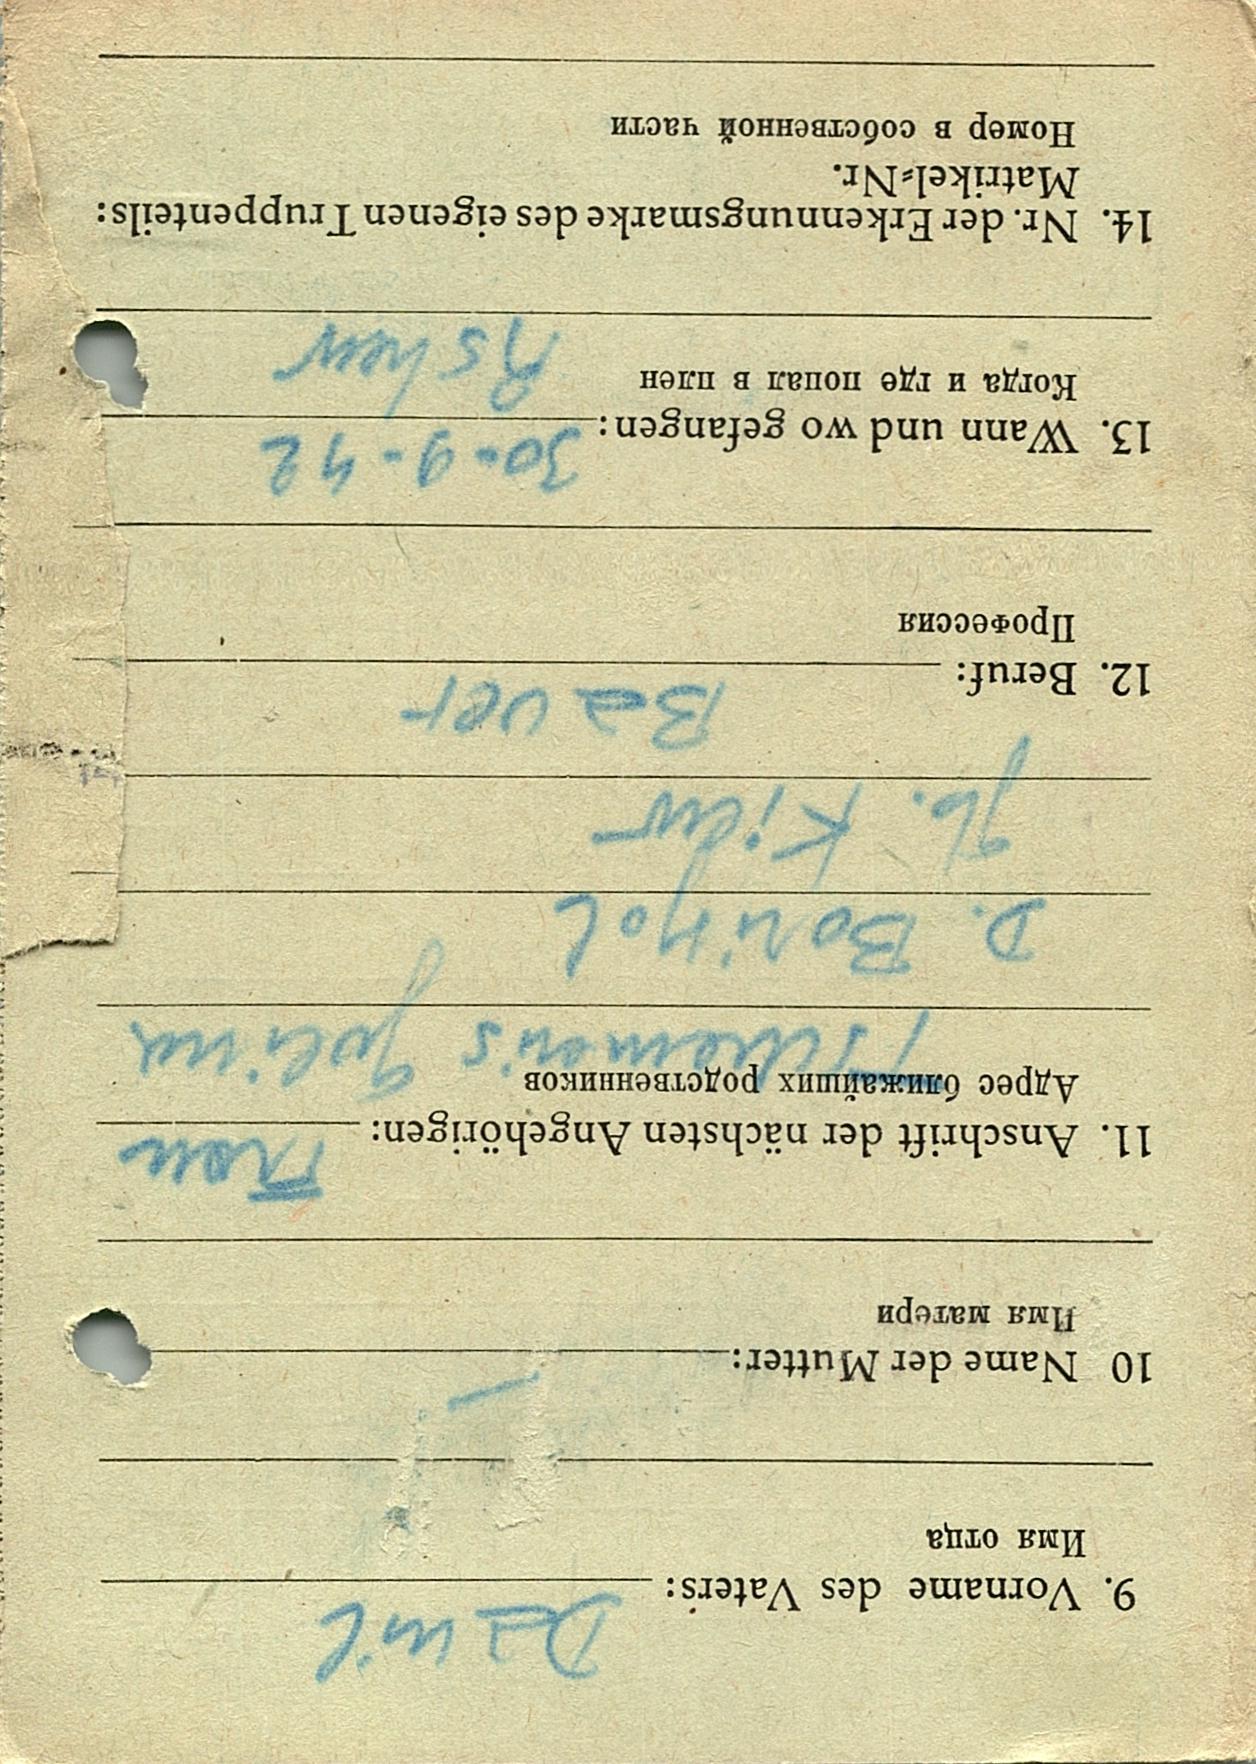 9. Vorname des Vaters: Danil
Имя отца
10 Name der Mutter: —
Имя матери
11. Anschrift der nächsten Angehörigen: Frau
Адрес ближайших родственников
D.
Gb. Kiew
12. Beruf: Bauer
Профессия
13. Wann und wo gefangen: 30.9.42
Когда и где попал в плен
Rshew
14. Nr. der Erkennungsmarke des eigenen Truppenteils:
Matrikel-Nr.
Номер в собственной части